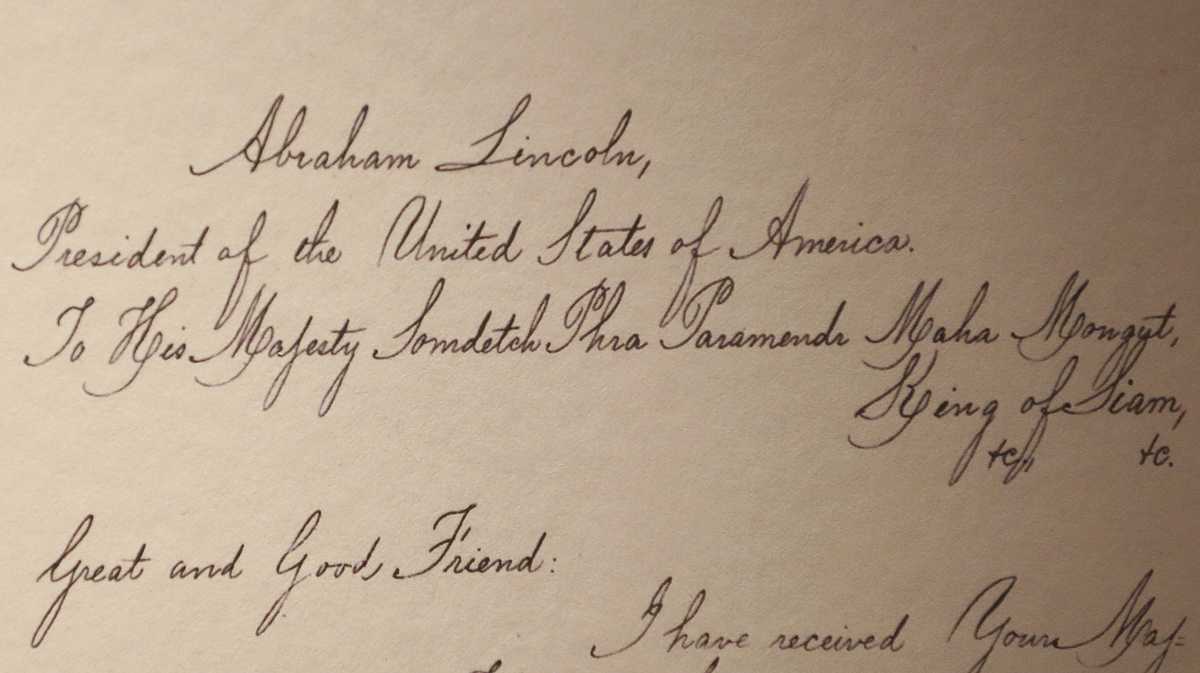 Abraham Lincoln,
President of the United States of America.
To His Majesty Somdetch Phra Paramendr Maha Mongut,
King of Siam,
&c., &c.
Great and Good Friend:
I have received Your Maj=